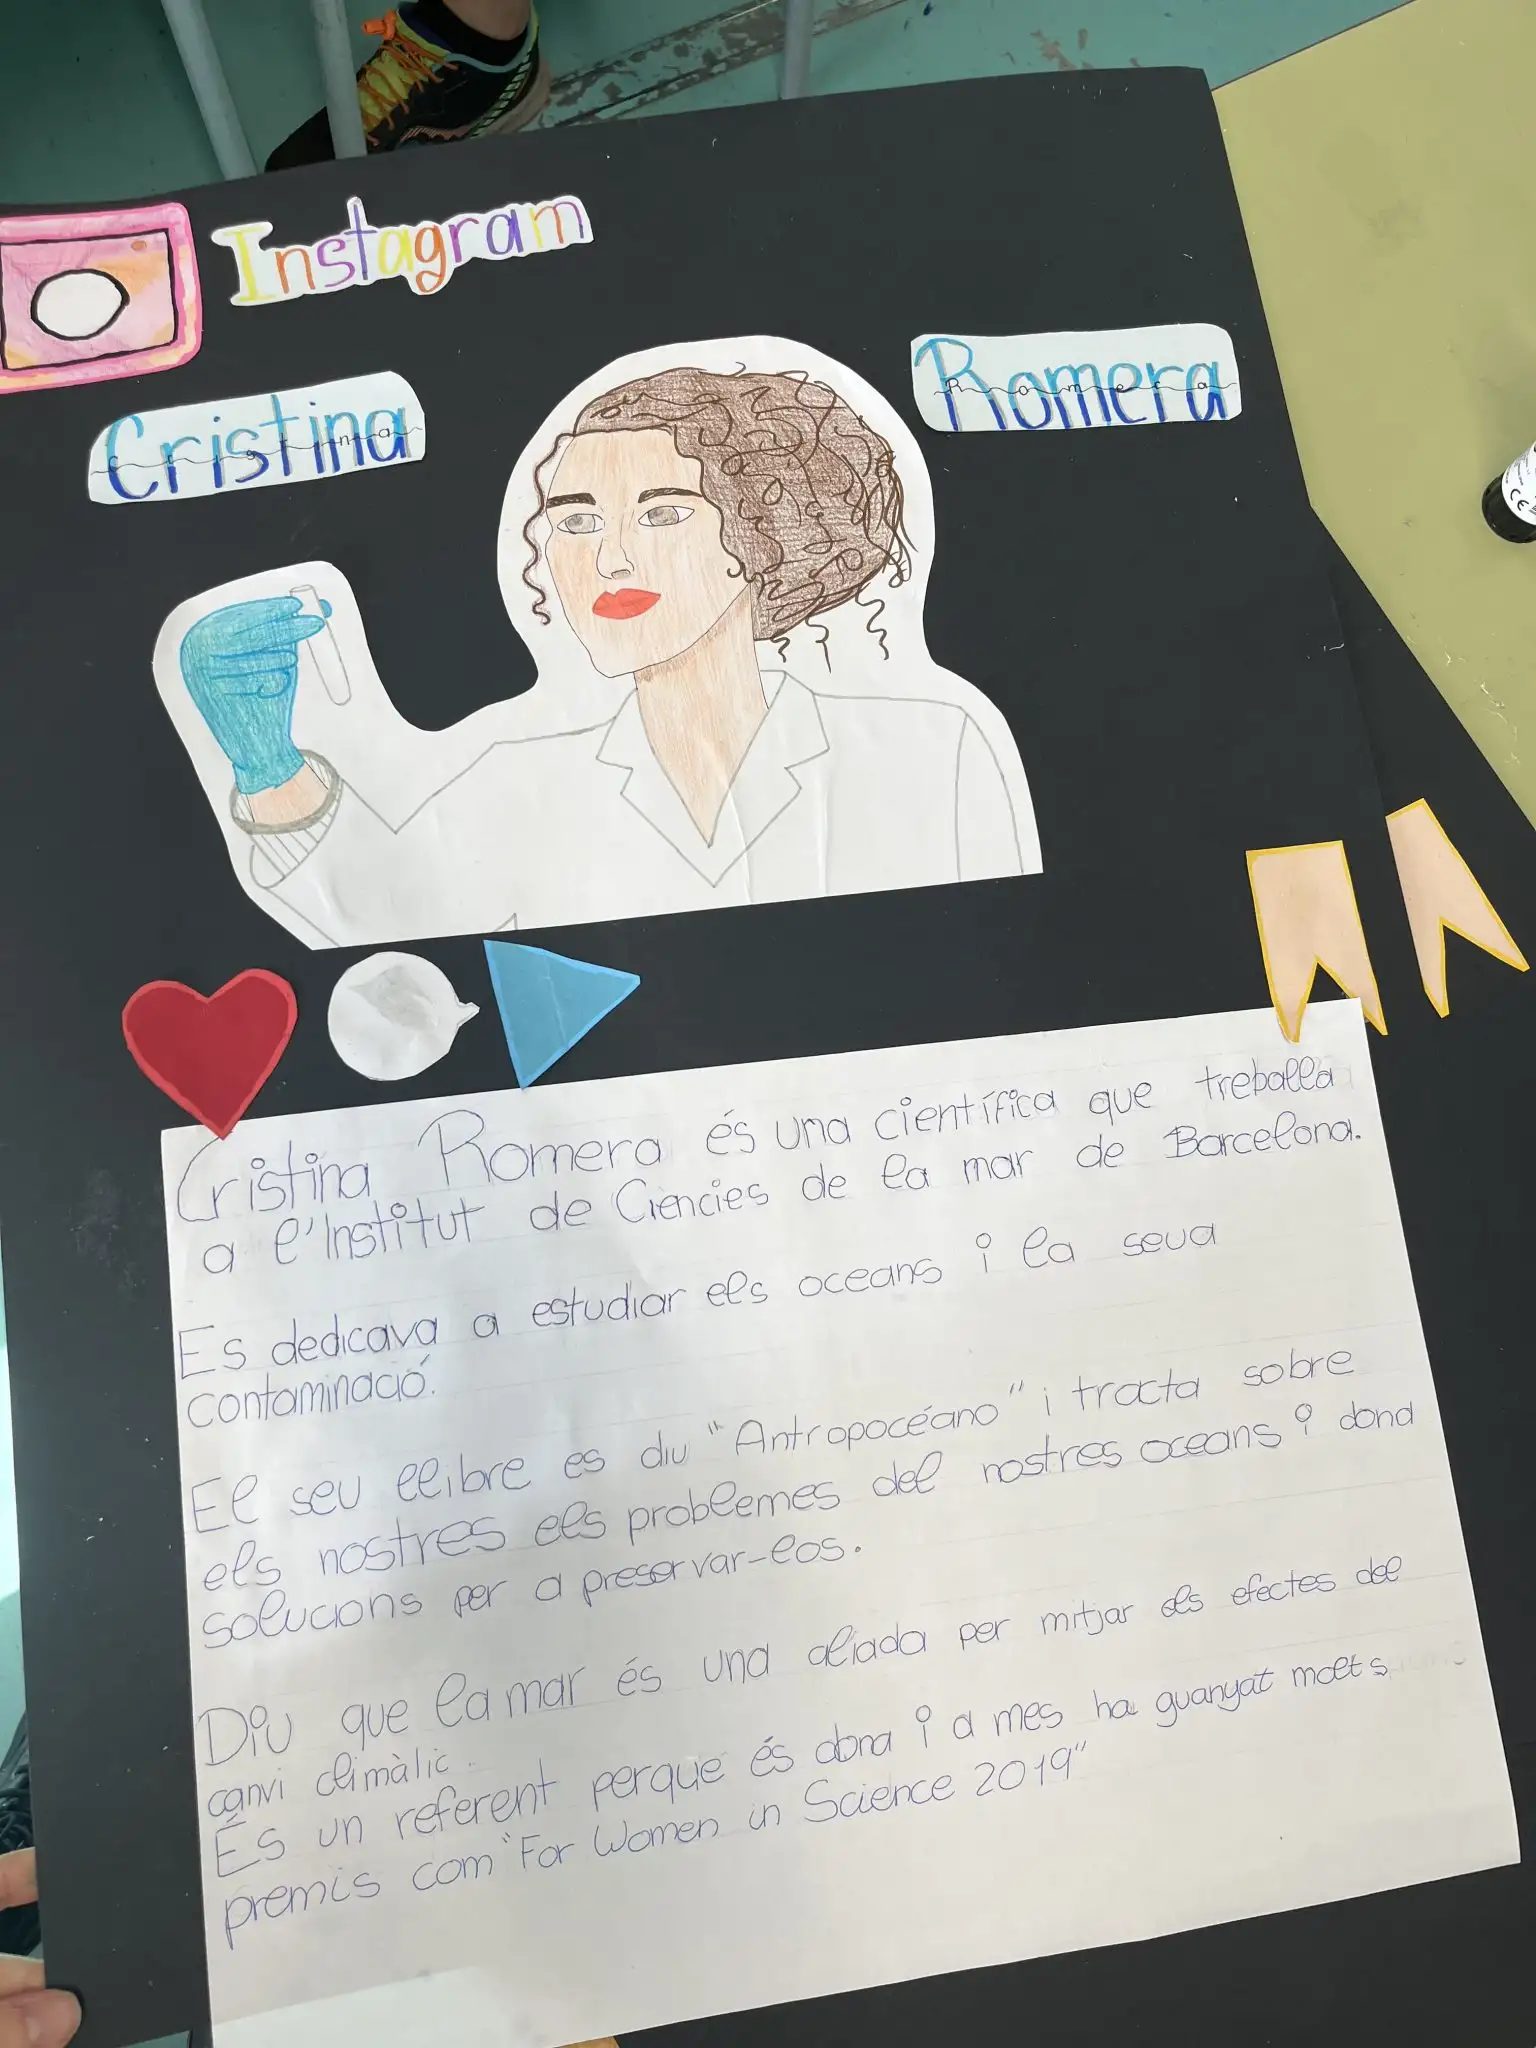 Instagram
Cristina
Cristina
Romera
Romera
Cristina Romera és una científica que treballa
a l'Institut de Ciències de la mar de Barcelona.
Es dedicava a estudiar els oceans i la seua
contaminació.
El seu llibre es diu "Antropocéano" i tracta sobre
els nostres els problemes del nostres oceans i dona
solucions per a preservar-los.
Diu que la mar és una aliada per mitjar els efectes del
canvi climàlic.
És un referent perque és dona i a mes ha guanyat molts
premis com "For Women in Science 2019"
CE